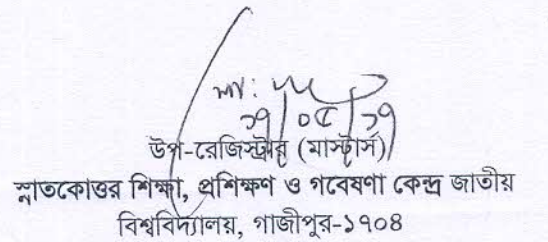 উপ-রেজিস্ট্রার (মাস্টার্স)
স্নাতকোত্তর শিক্ষা, প্রশিক্ষণ ও গবেষণা কেন্দ্র জাতীয়
বিশ্ববিদ্যালয়, গাজীপুর-১৭০৪